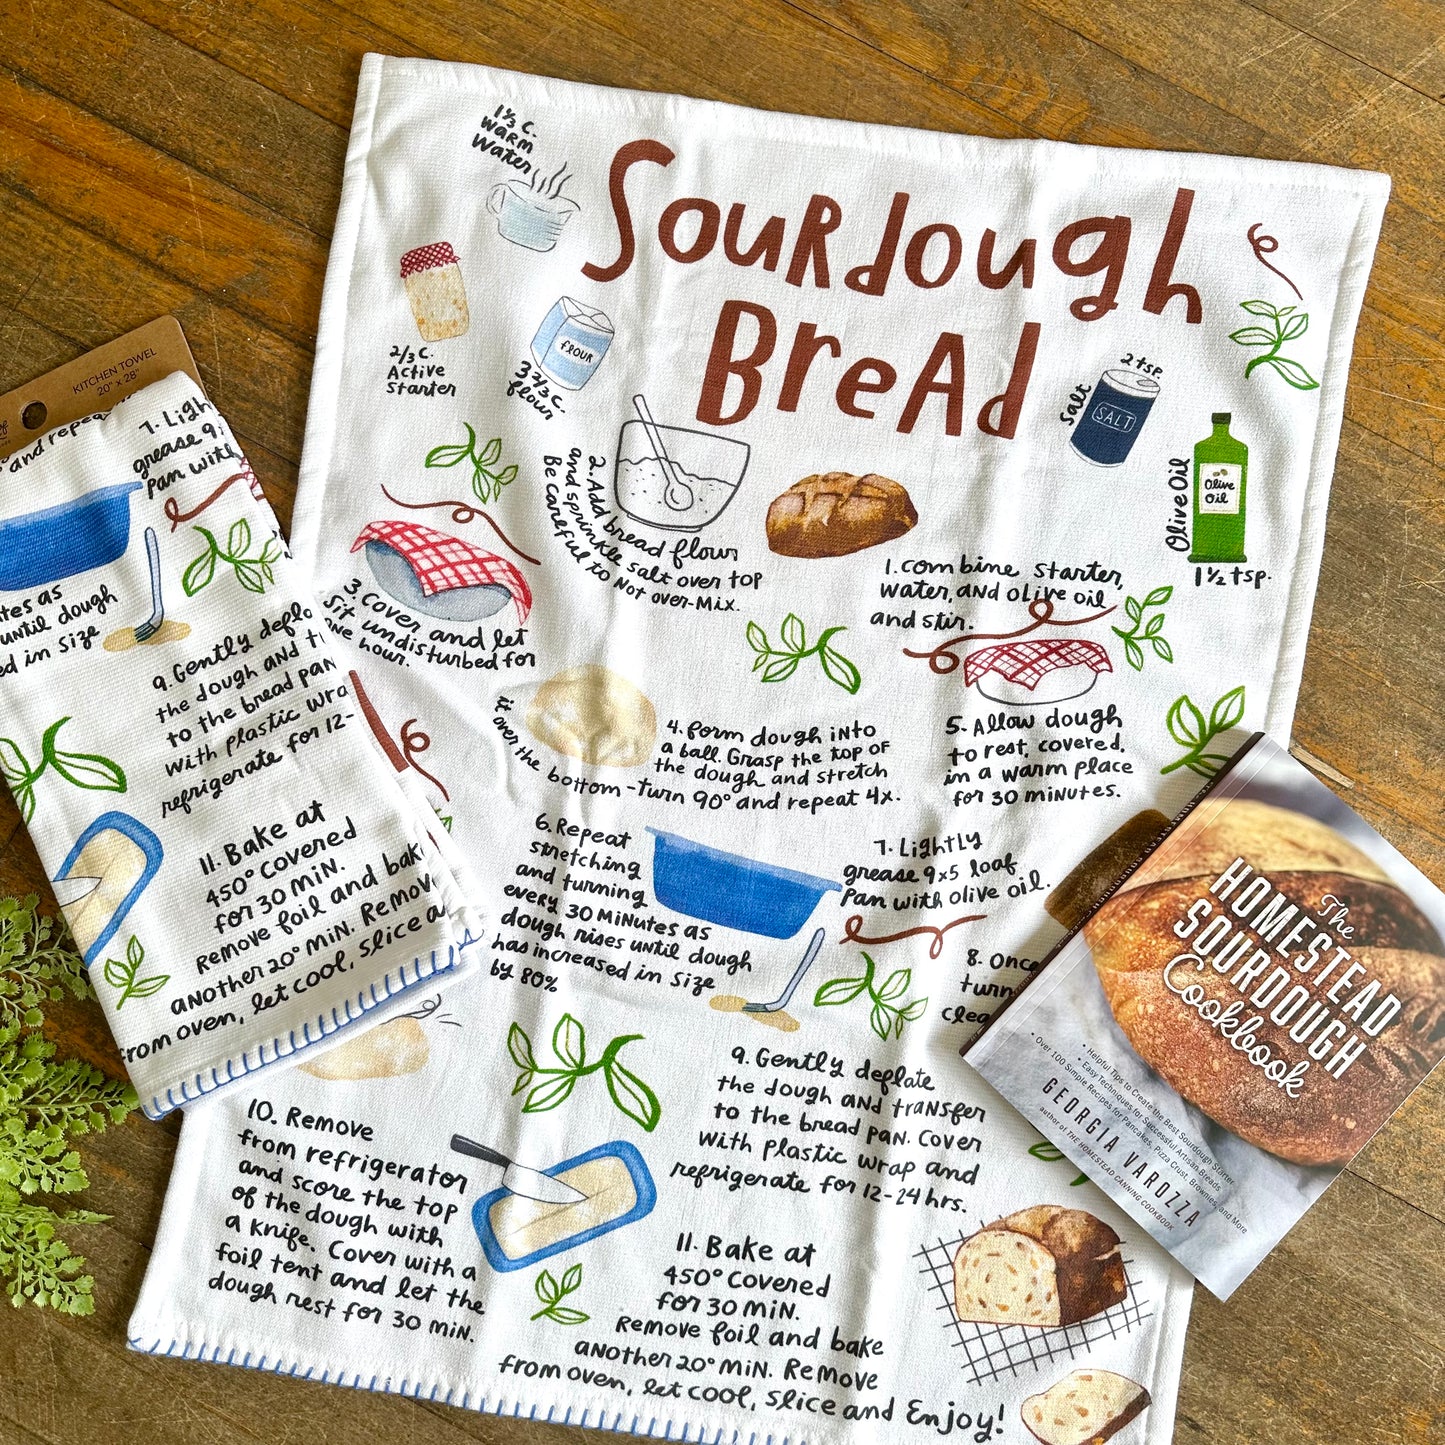 Sourdough
Bread
1⅓ c.
warm
water
2/3 c.
Active
starter
flour
3 2/3 c.
flour
2 tsp.
Salt
SALT
Olive Oil
Olive
Oil
1 ½ tsp.
1. combine starter,
water, and olive oil
and stir.
2. Add bread flour
and sprinkle salt over top
Be careful to Not over-mix.
3. Cover and let
sit undisturbed for
one hour.
4. form dough into
a ball. Grasp the top of
the dough and stretch
it over the bottom - turn 90° and repeat 4x.
5. Allow dough
to rest, covered,
in a warm place
for 30 minutes.
6. Repeat
stretching
and turning
every 30 minutes as
dough rises until dough
has increased in size
by 80%
7. Lightly
grease 9x5 loaf
pan with olive oil.
8. Once
turn
clea
9. Gently deflate
the dough and transfer
to the bread pan. Cover
with plastic wrap and
refrigerate for 12-24 hrs.
10. Remove
from refrigerator
and score the top
of the dough with
a knife. Cover with a
foil tent and let the
dough rest for 30 min.
11. Bake at
450° covered
for 30 min.
Remove foil and bake
another 20° min. Remove
from oven, let cool, slice and Enjoy!
KITCHEN TOWEL
20" x 28"
and repea
7. Ligh
grease 9
pan with
tes as
until dough
ed in size
9. Gently defl
the dough and t
to the bread pan
with plastic wra
refrigerate for 12-
11. Bake at
450° covered
for 30 min.
Remove foil and bak
another 20° min. Remov
from oven, let cool, slice a
The
HOMESTEAD
SOURDOUGH
Cookbook
• Helpful Tips to Create the Best Sourdough Starter
• Easy Techniques for Successful Artisan Breads
• Over 100 Simple Recipes for Pancakes, Pizza Crust, Brownies, and More
GEORGIA VAROZZA
author of THE HOMESTEAD CANNING COOKBOOK